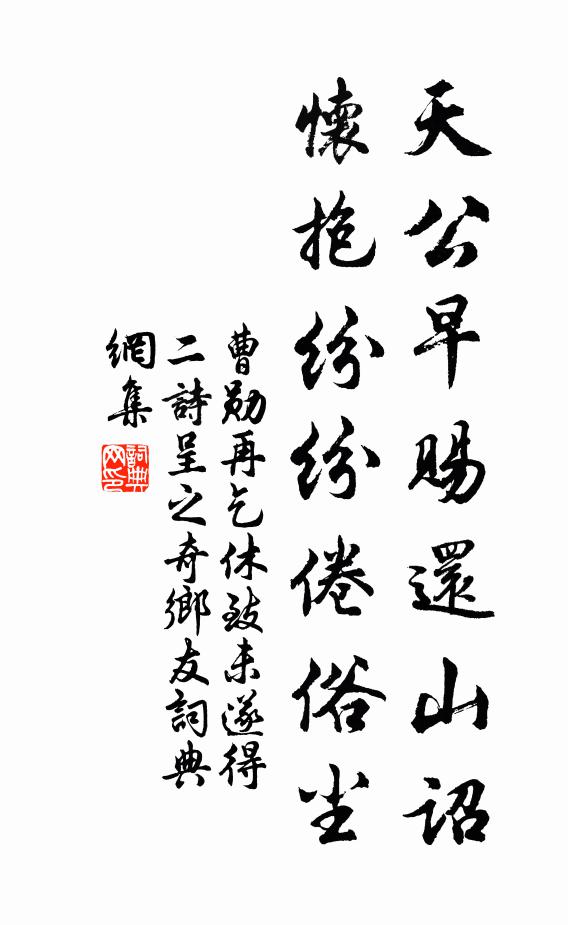 天公早賜還山詔
懷抱紛紛倦俗尘
曹勛再乞休致未遂得
二詩呈之奇鄉友詞典
網集
詞典
网印